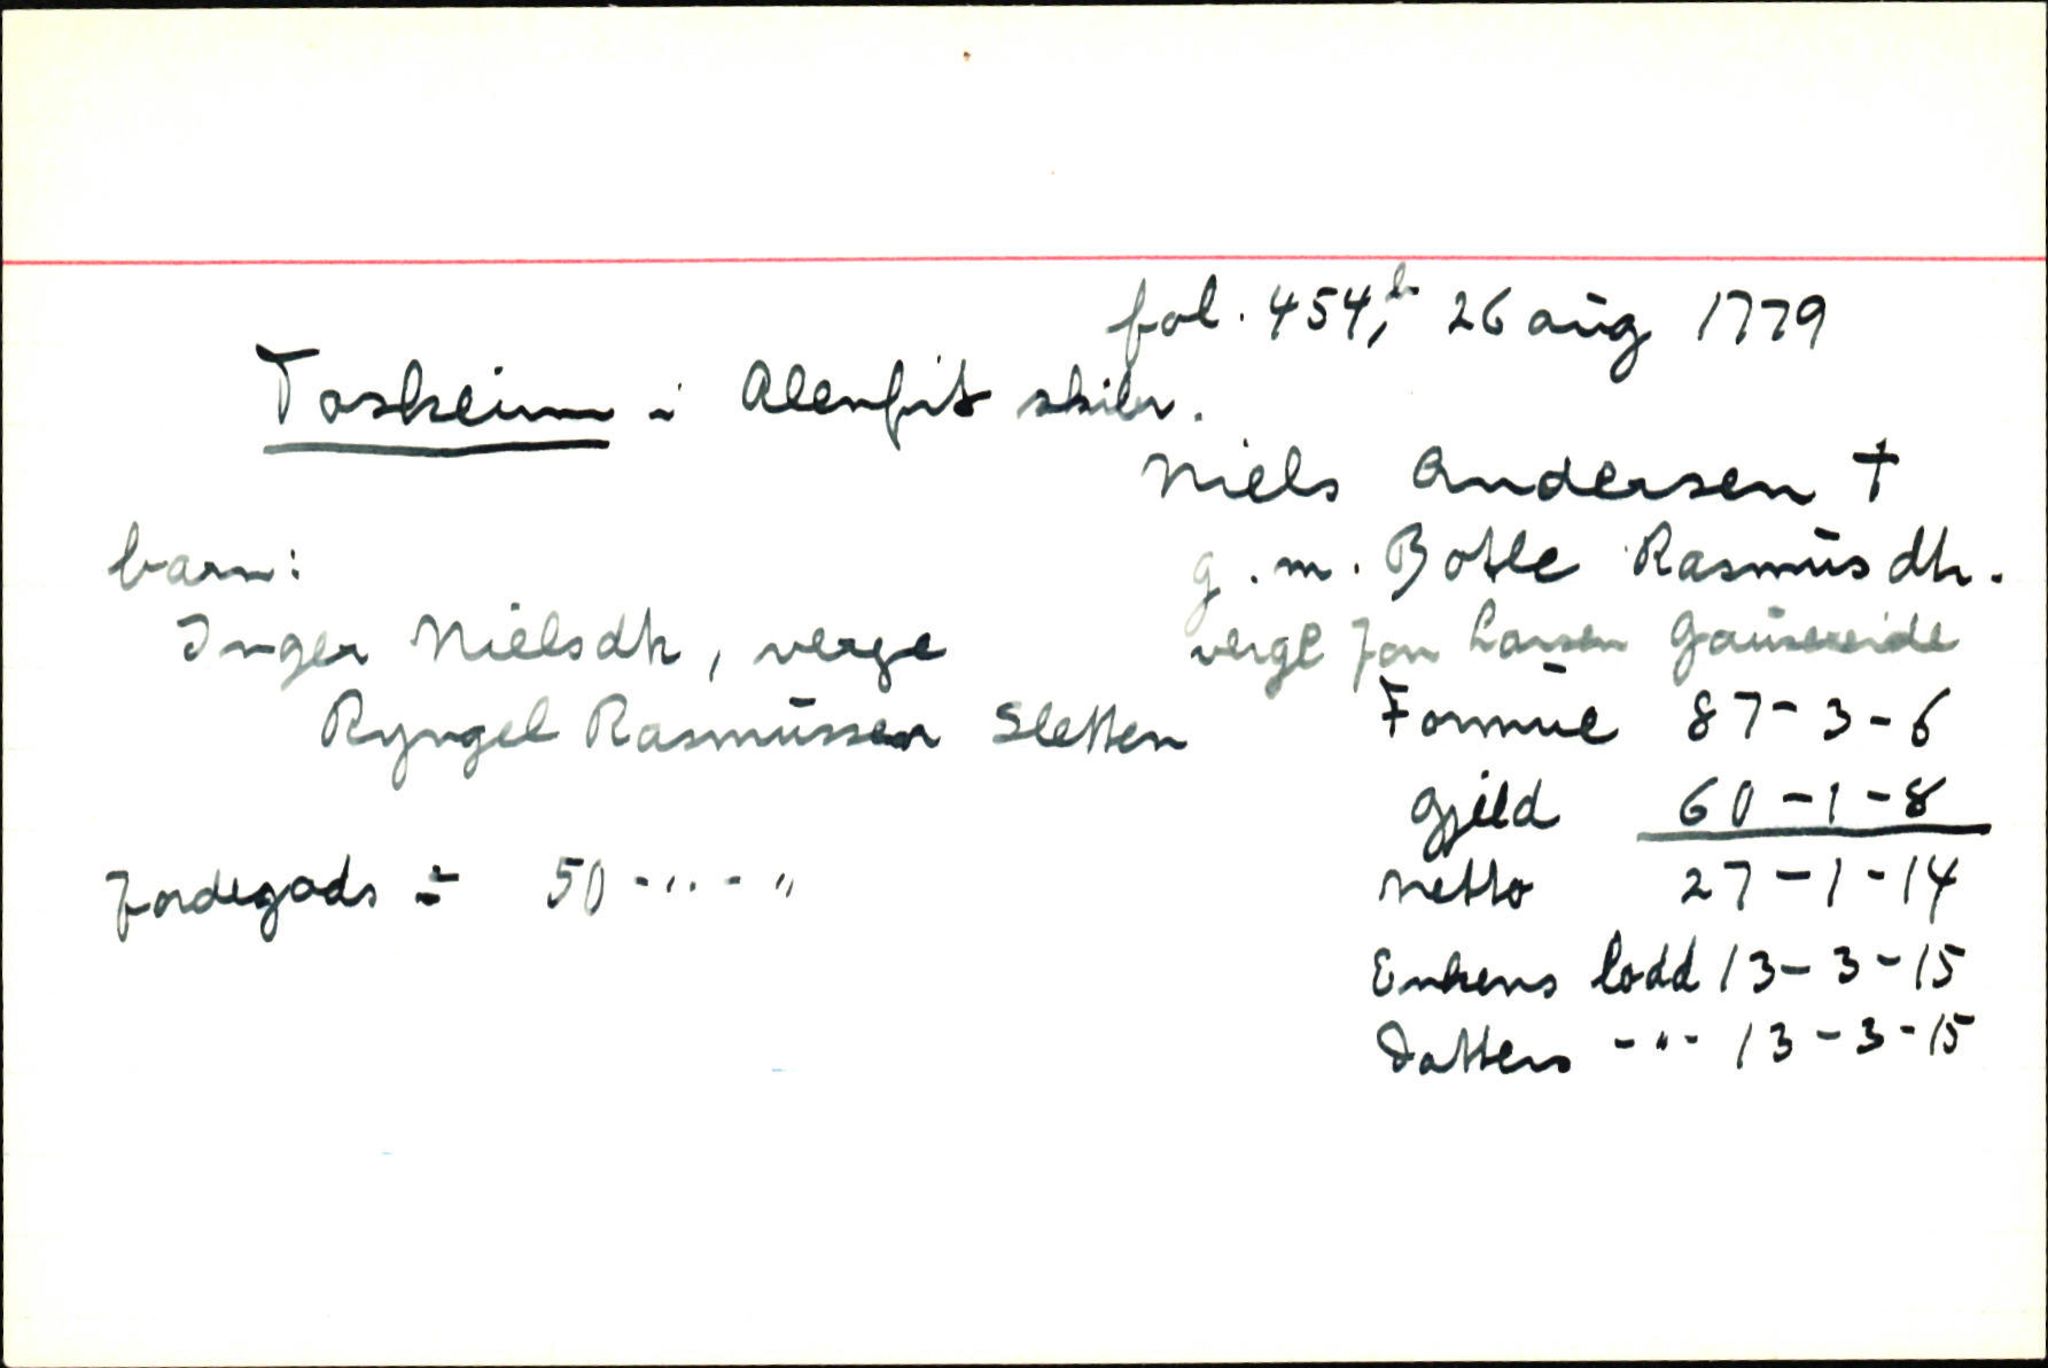 fol. 454,b 26 aug 1779
Toskeim i Alenfit skibr.
Niels Andersen †
g. m. Botle Rasmusdtr.
verge Jon Larsen Gausereide
barn:
Inger Nielsdtr, verge
Ryngel Rasmussen Sletten
Formue 87-3-6
Gjeld 60-1-8
Netto 27-1-14
Enkens lodd 13-3-15
Datters -"- 13-3-15
Jordegods ÷ 50-"-"